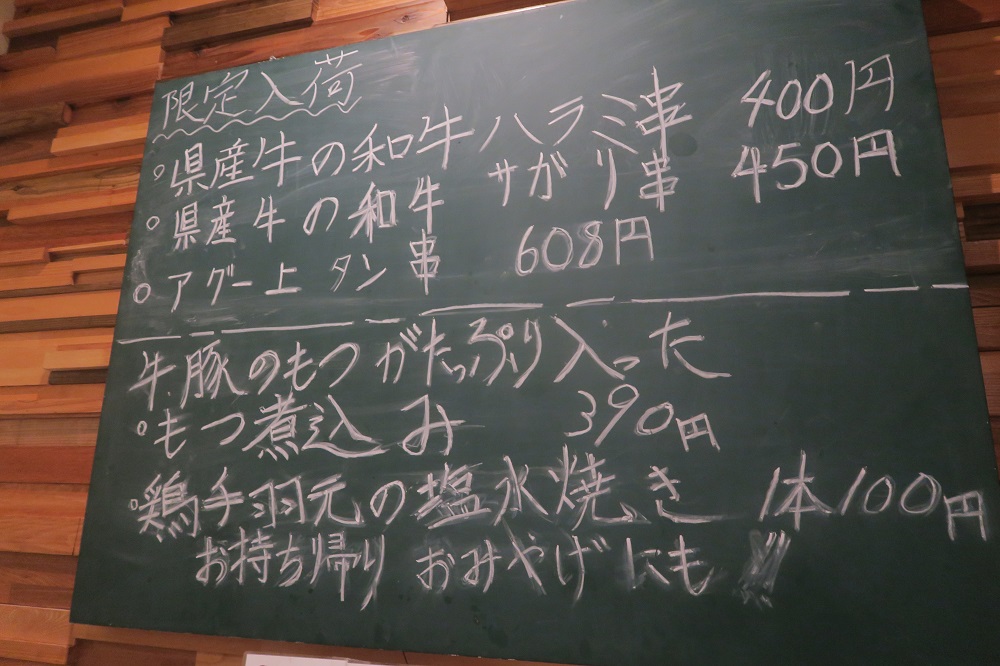 限定入荷
○県産牛の和牛ハラミ串 400円
○県産牛の和牛 サガリ串 450円
○アグー上タン串 608円
牛豚のもつがたっぷり入った
○もつ煮込み 390円
○鶏手羽元の塩水焼き 1本100円
お持ち帰り おみやげにも!!!